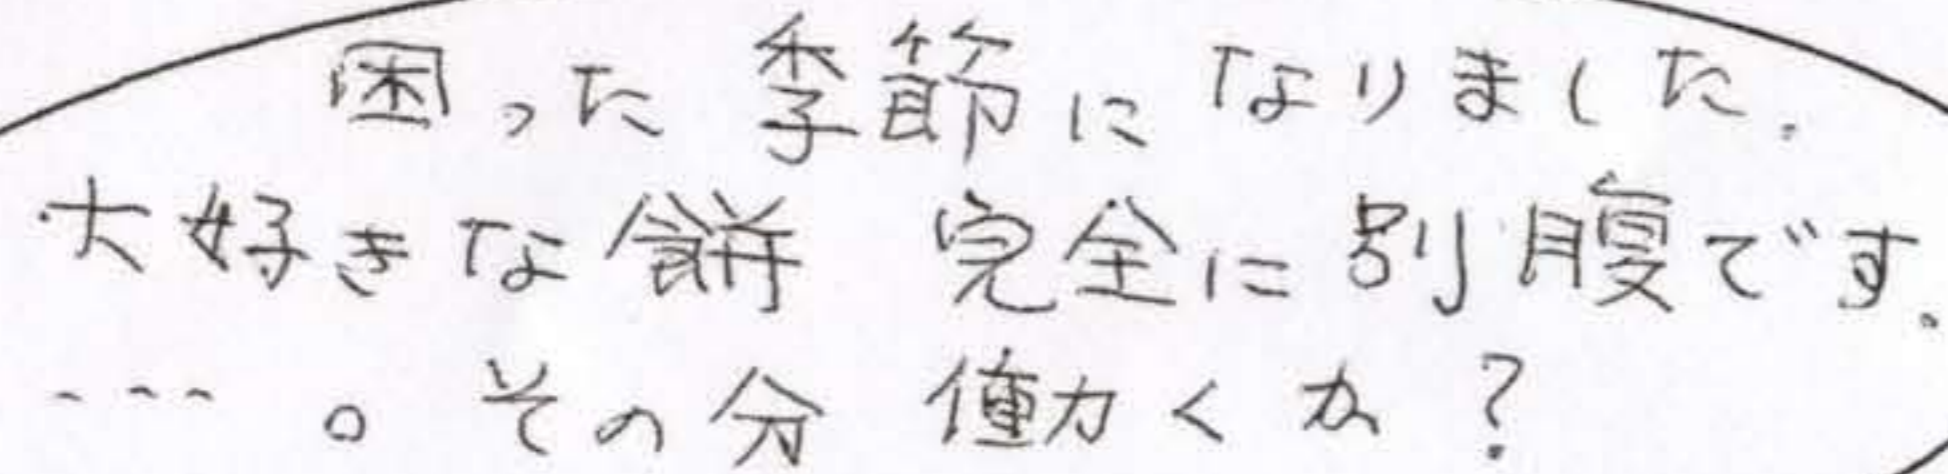 困った季節になりました。
大好きな餅 完全に別腹です。
----。その分 働くか?